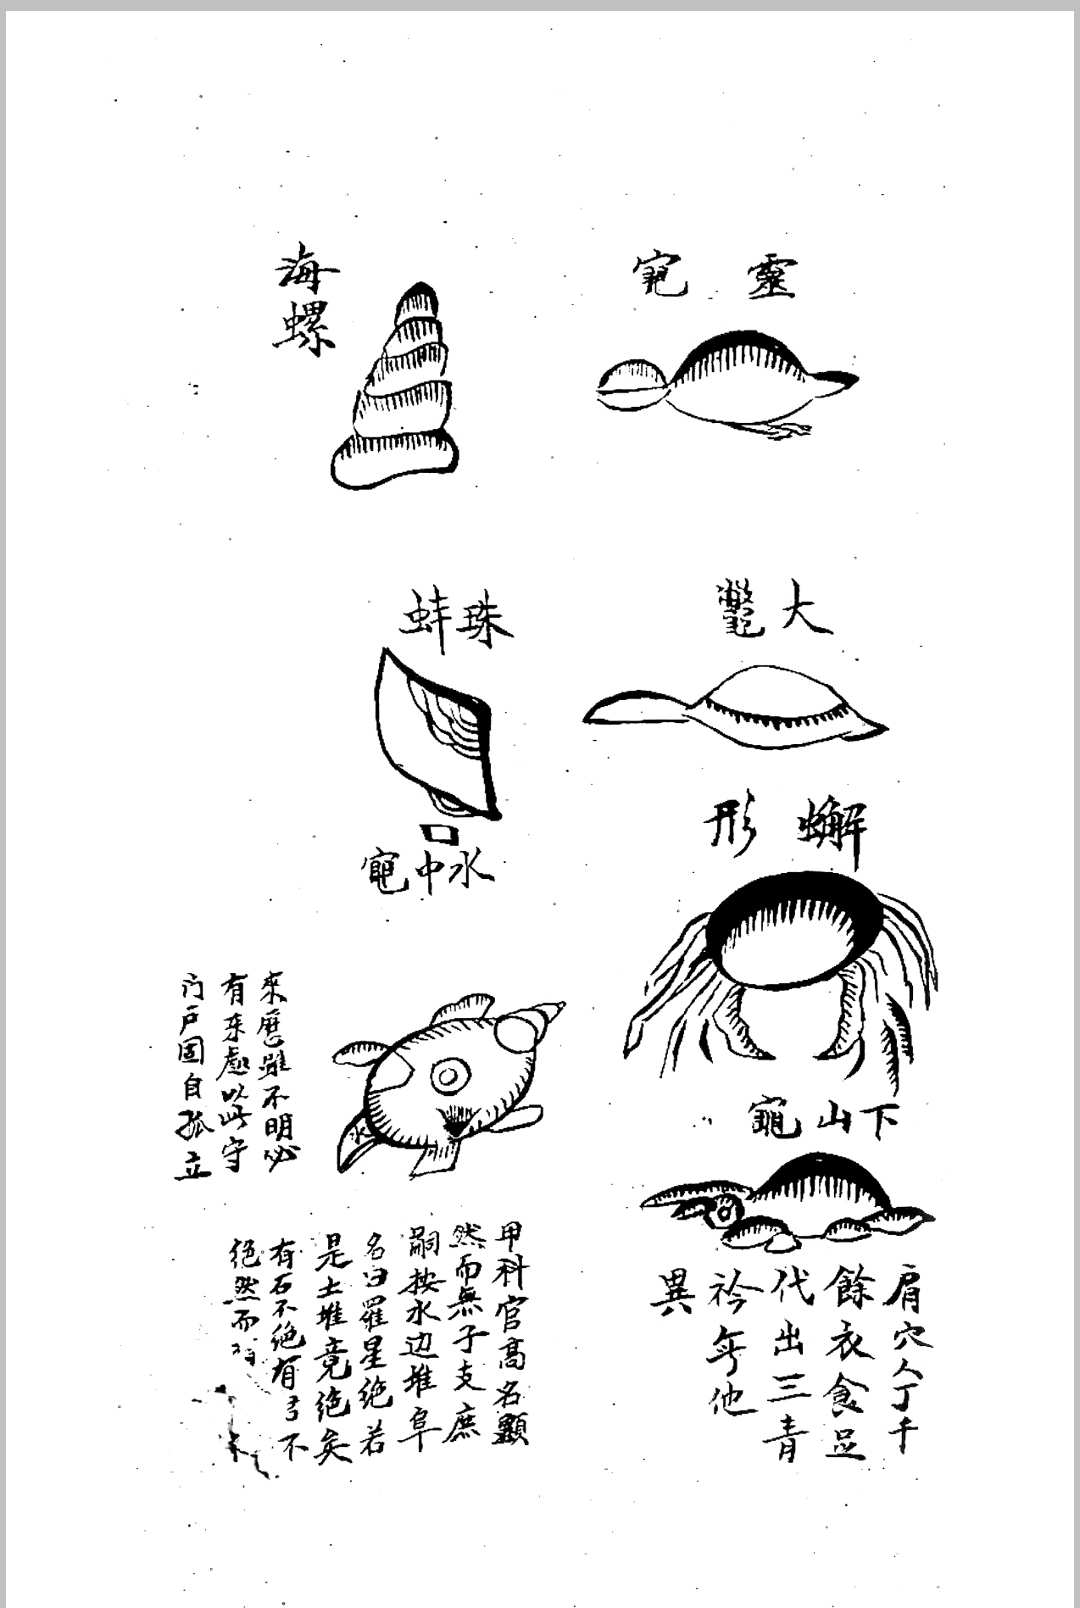 靈龟
大鼈
蠏形
下山龜
肩穴人丁千
餘衣食足
代出三青
衿年他
異
海
螺
珠蚌
口
水中龟
來歷雖不明必
有來處以此守
门户固自孤立
甲科官高名顯
然而無子支庶
嗣按水边堆阜
名曰羅星绝若
是土堆竟绝矣
有石不绝有弓不
绝然而